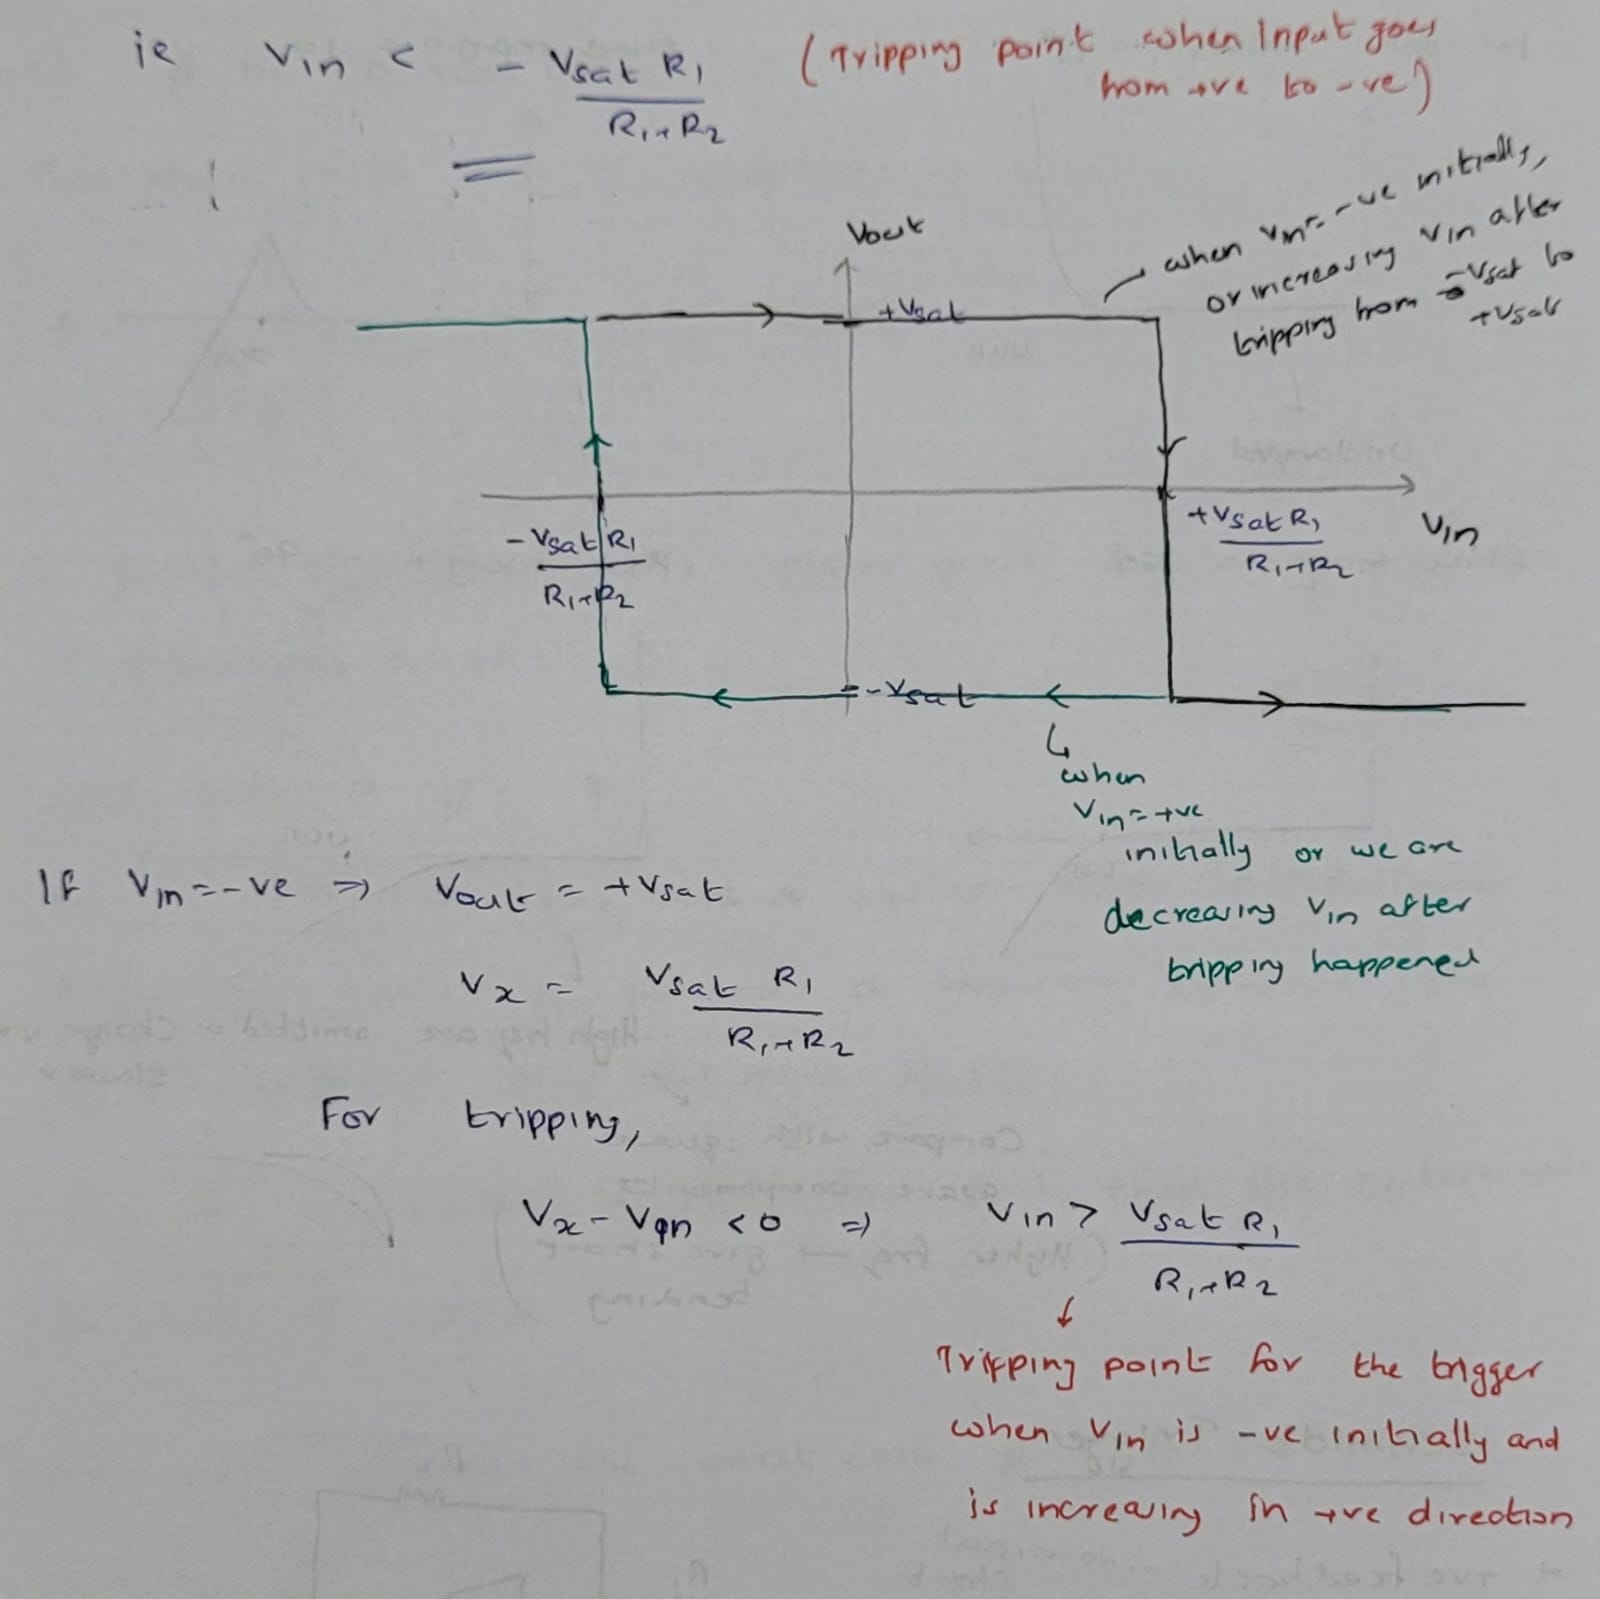 ie Vin < - Vsat R1 (Tripping point when Input goes
R1+R2 from +ve to -ve)
Vout
when Vin = -ve initially,
or increasing Vin after
tripping from -Vsat to
+Vsat
+Vsat
- Vsat R1
R1+R2
+Vsat R1
R1+R2
Vin
-Vsat
when
Vin = +ve
initially or we are
decreasing Vin after
tripping happened
If Vin = -ve ⇒ Vout = +Vsat
Vx = Vsat R1
R1+R2
For tripping,
Vx - Vin < 0 ⇒ Vin > Vsat R1
R1+R2
Tripping point for the trigger
when Vin is -ve initially and
is increasing in +ve direction